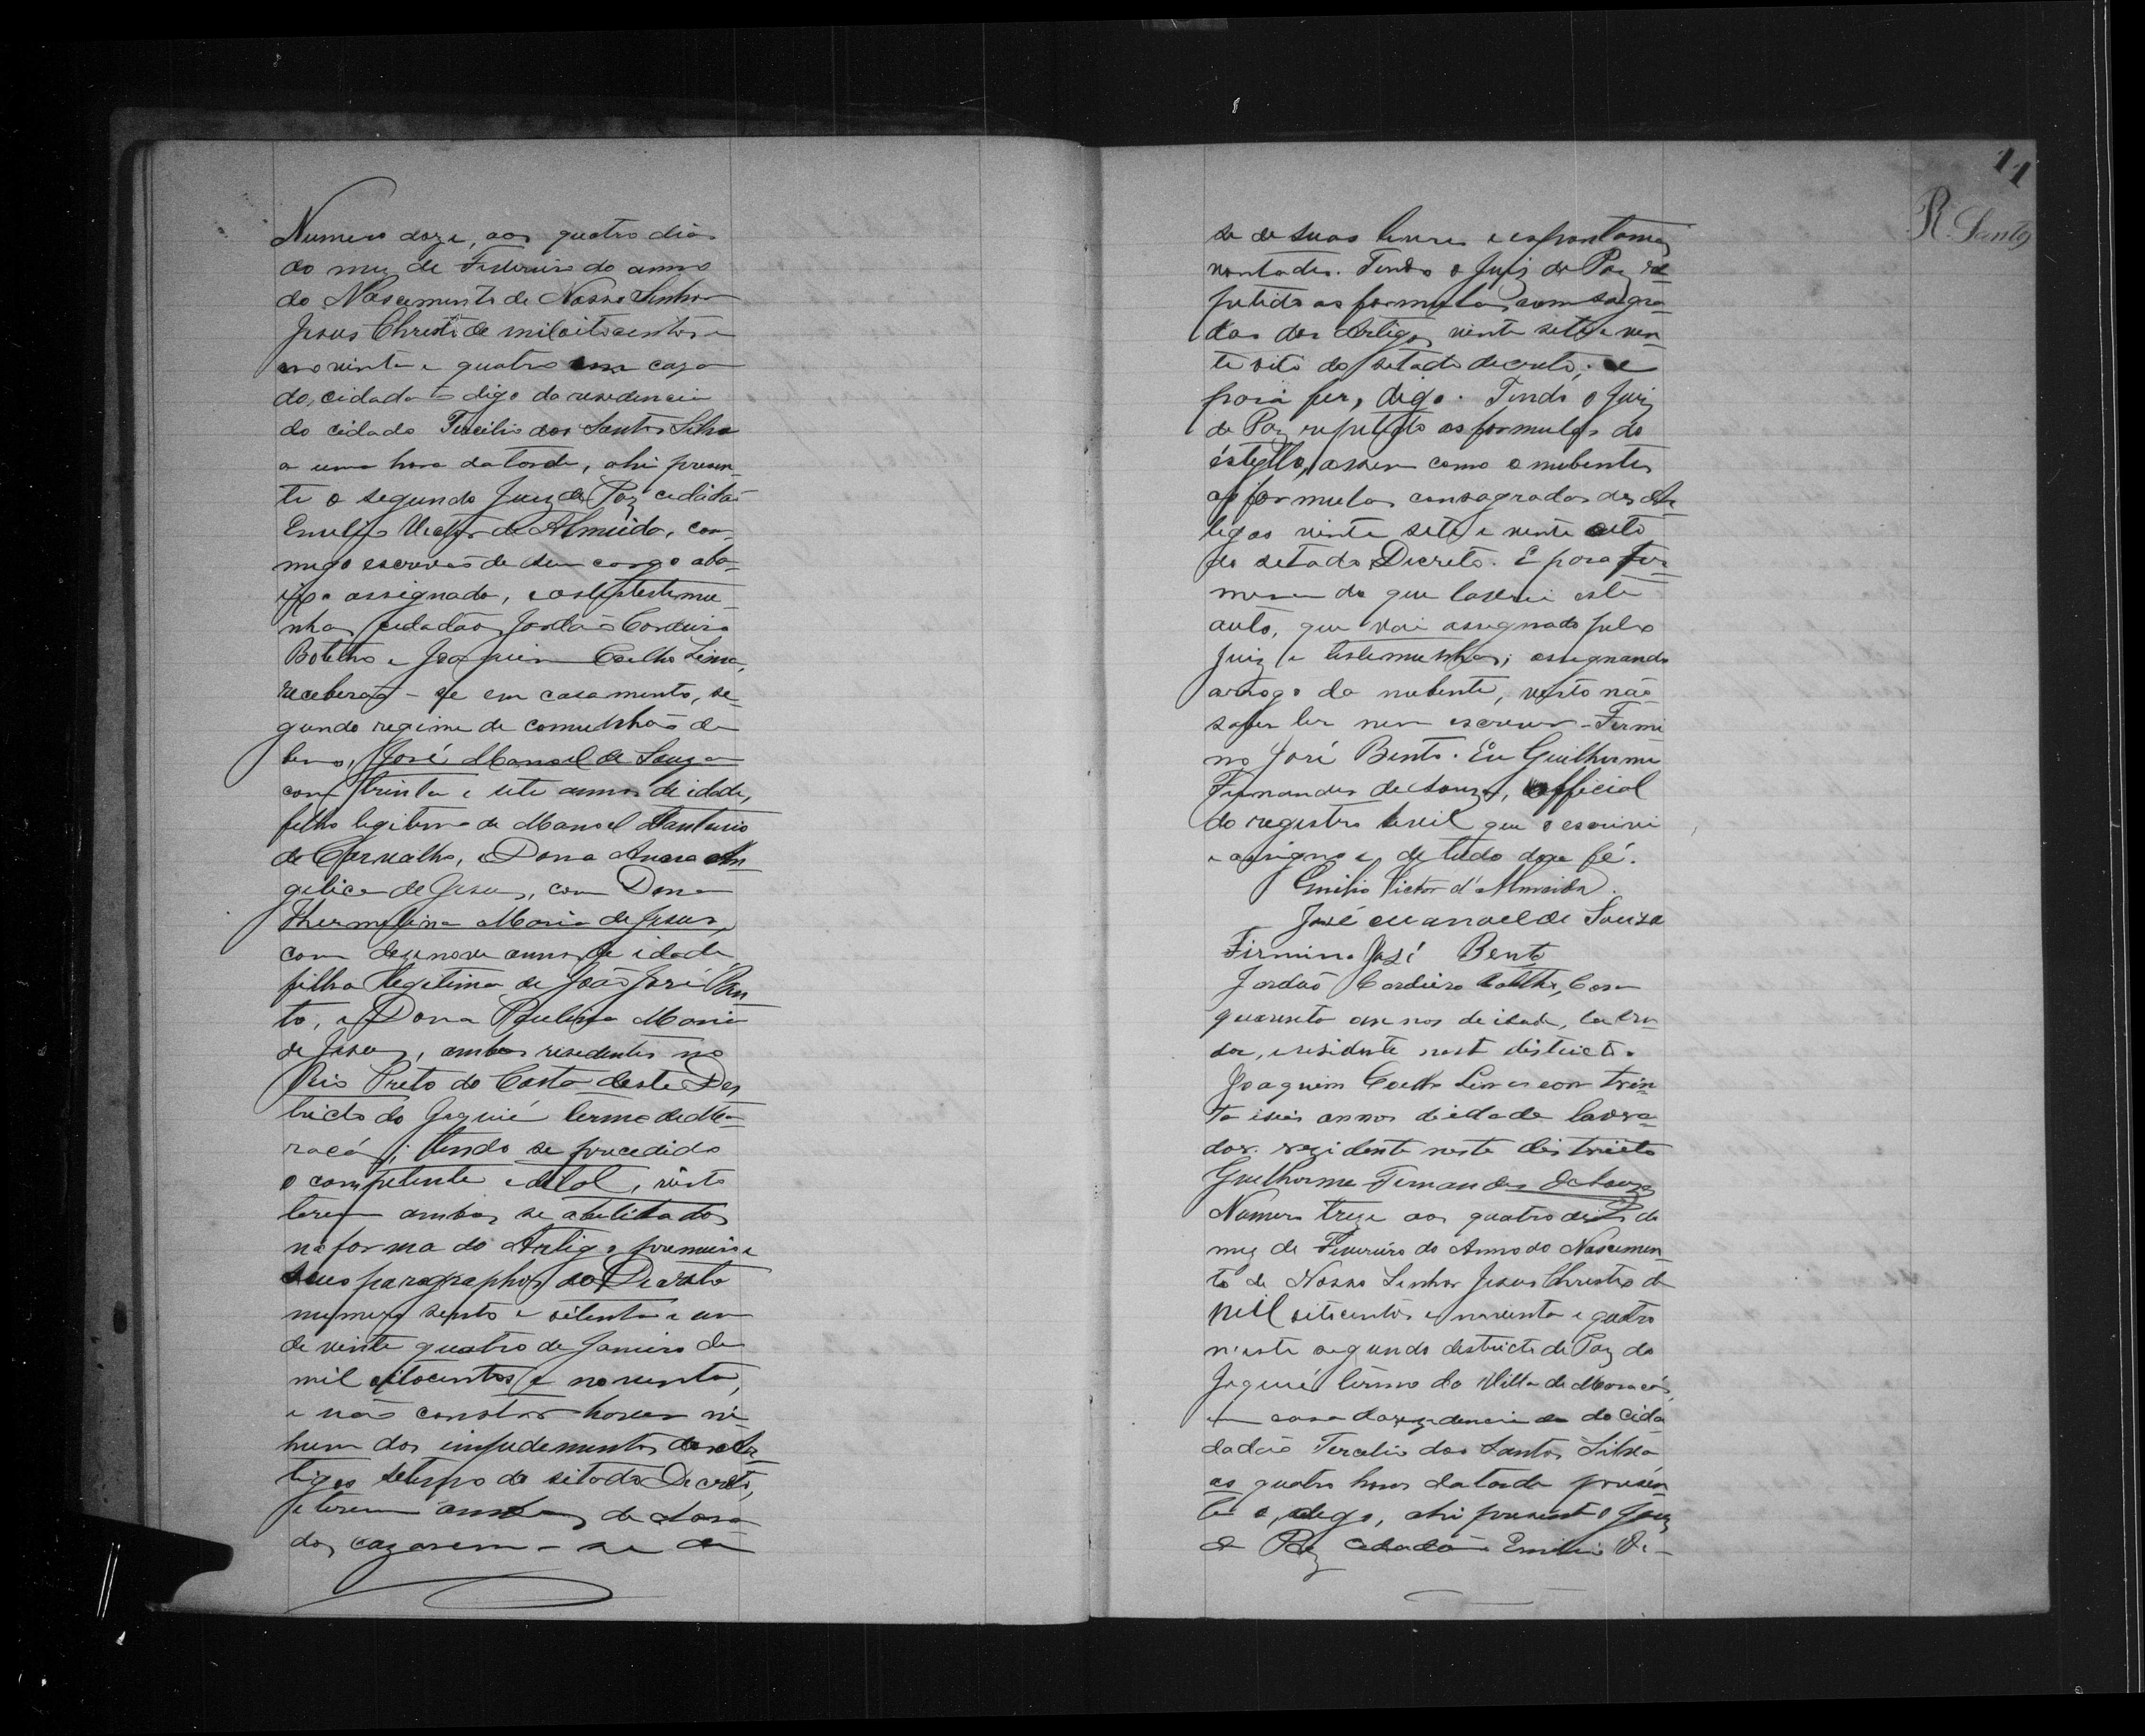 Numero doze, aos quatro dias
do mez de Fevereiro do anno
do Nascimento de Nosso Senhor
Jesus Christo de mil oito centos e
noventa e quatro em caza
do, cidadão digo da residencia
do cidadão Tercilio dos Santos Silva
a uma hora da tarde, ahi presen-
te o segundo Juiz de Paz cidadão
Emilio Victor de Almeida, com-
migo escrivão de seu cargo aba-
ixo assignado, e as testemu-
nhas cidadãos Jordão Cordeiro
Botelho e Joaquim Coelho Lima,
receberão-se em casamento, se-
gundo regime de comunhão de
bens, José Manoel de Souza
com trinta e sete annos de idade,
filho legitimo de Manoel
de Carvalho, e Dona Anna An-
gelica de Jesus, com Dona
Thermelina Maria de Jesus,
com dezenove annos de idade
filha legitima de João José Ben-
to, e Dona Paulina Maria
de Jesus, ambos residentes no
Rio Preto do Costa deste Des
tricto do Jequié termo de Ma-
racás; tendo se procedido
o competente edital, visto
terem ambos se abelitados
na forma do Artigo primeiro e
seus paragraphos do Decreto
numero sento e oitenta e um
de vinte quatro de Janeiro de
mil oitocentos e noventa,
e não constar haver ne-
hum dos impedimentos do Ar
tigos setimo do sitado Decreto,
e terem ambos
dos cazarem-se de
11
R. Santos
se de suas livres e espontaneas
vontades. Tendo o Juiz de Paz re-
petido as formulas comsagra-
das dos Artigos vinte sete e vin
te oito do setado decreto, e
para fer, digo. Tendo o Juiz
de Paz repetido as formulas do
estyllo, assim como o nubentes
as formulas consagradas dos Ar
tigos vinte sete e vinte oito
do setado Decreto. E para fir-
mesa do que lavrei este
auto, que vai assignado pelo
Juiz e testemunhas; assignando
arrogo da nubente, visto não
saber ler nem escrever-Firmi
no José Bento. Eu Guilherme
Fernandes de Souza, official
do registro sevil que o escrivi
e assigno e de tudo dou fé.
Emilio Victor d'Almeida.
José Manoel de Souza
Firmino José Bento
Jordão Cordeiro Botelho, Com
quarenta annos de idade, lavra-
dor, residente nest districto.
Joaquim Coelho Lima com trin
ta e seis annos de idade lavra-
dor. rezidente neste districto
Guelherme Fernandes de Souza
Numero treze aos quatro dias do
mez de Fevereiro do Anno do Nascimen
to de Nosso Senhor Jesus Christo de
mil oitocentos e noventa e quatro
n'este segundo destricto de Paz do
Jequié termo da Villa de Maracás,
em casa da rezidencia do Cida
dadão Tercilio dos Santos Silva
as quatro horas da tarde presen
te o, digo, ahi presente o Juiz
de Paz cidadão Emilio Vi-